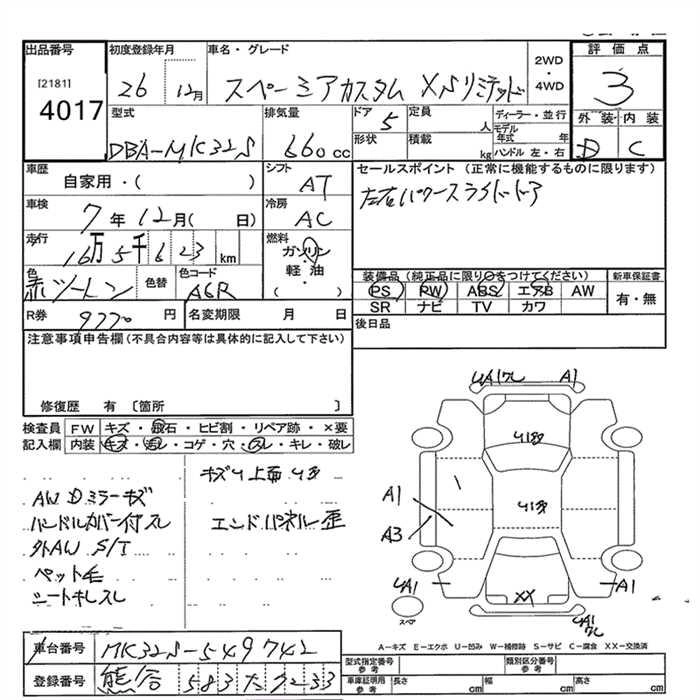 出品番号
[2181]
4017
初度登録年月
26 12月
車名・グレード
スペーシアカスタム XSリミテッド
2WD
・
4WD
評価点
3
外装 内装
D C
型式
DBA-MK32S
排気量
660 cc
ドア
5
形状
定員
人
積載
kg
ディーラー・並行
モデル
年式 年
ハンドル 左・右
車歴
自家用・( )
車検
7年12月( 日)
走行
16万5千623 km
色
赤ツートン
色替
色コード
A6R
シフト
AT
冷房
AC
燃料
ガソリン
軽・油
( )
セールスポイント (正常に機能するものに限ります)
左右パワースライドドア
装備品 (純正品に限り○をつけてください)
PS PW ABS エアB AW
SR ナビ TV カワ
新車保証書
有・無
R券 9770 円
名変期限 月 日
後日品
注意事項申告欄(不具合内容等は具体的に記入して下さい)
修復歴 有 〔箇所 〕
検査員
記入欄
FW キズ・飛石・ヒビ割・リペア跡・×要
内装 キズ・汚レ・コゲ・穴・スレ・キレ・破レ
AW Dミラーキズ
ハンドルカバー付スレ
外AW S/T
ペット毛
シートキレスレ
エンドパネル歪
A1
A1
A3
A1
XX
スペア
A-キズ E-エクボ U-凹み W-補修跡 S-サビ C-腐食 XX-交換済
車台番号 MK32S-549742
登録番号 熊谷 583 た 9233
型式指定番号
参考
類別区分番号
参考
車庫証明用
参考
長さ cm 幅 cm 高さ cm